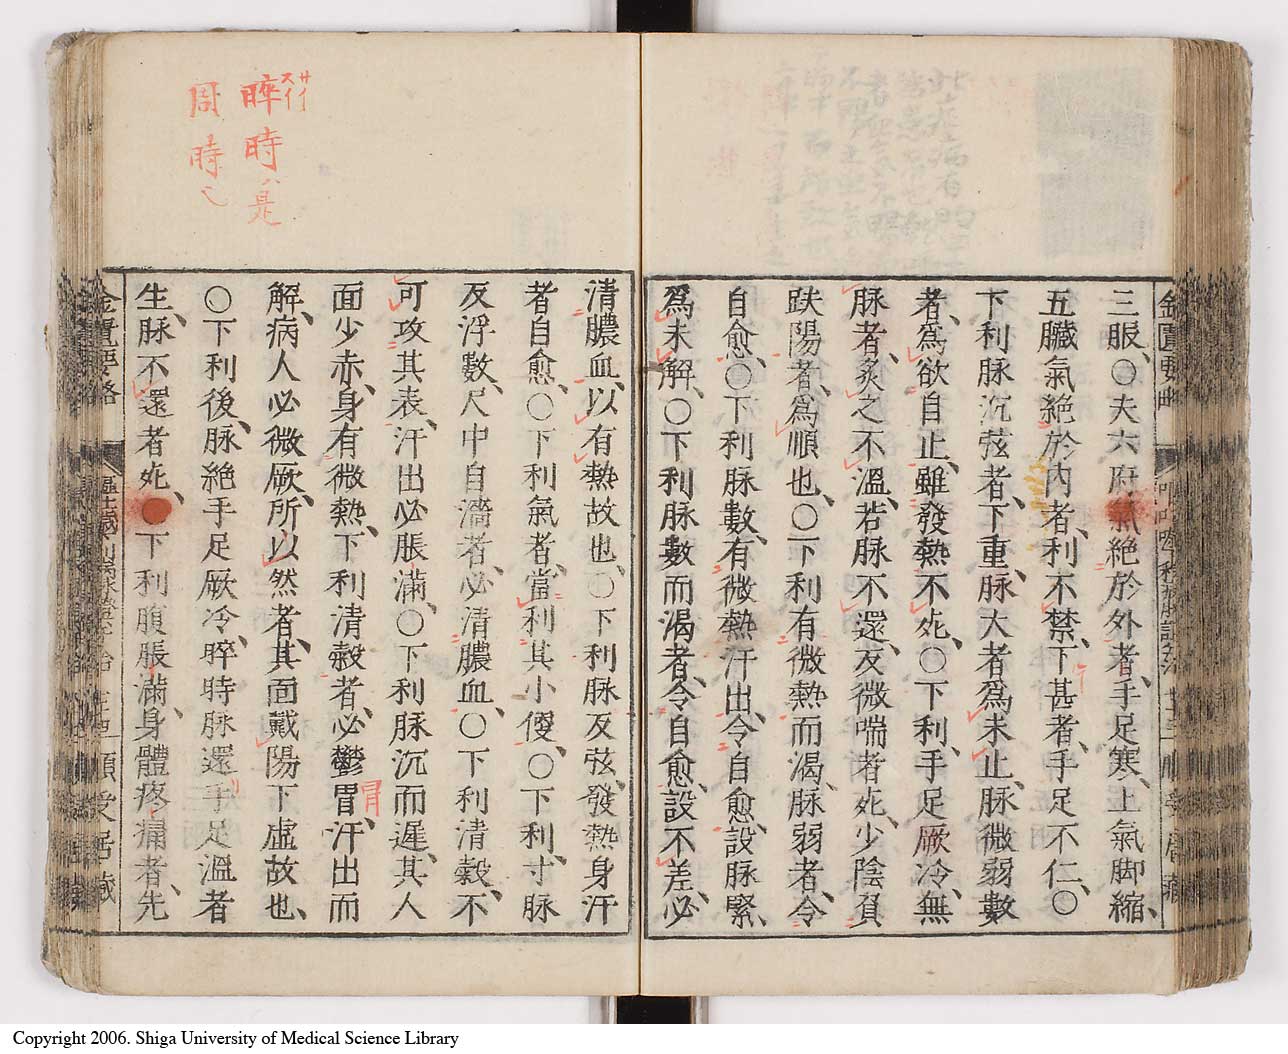 三服、○夫六府氣絶於外者、手足寒、上氣脚縮、
五臟氣絶於内者、利不禁、下甚者、手足不仁、○
下利脉沉弦者、下重、脉大者爲未止、脉微弱數
者、爲欲自止、雖發熱不死、○下利、手足厥冷、無
脉者、炙之不溫、若脉不還、反微喘者死、少陰負
趺陽者、爲順也、○下利有微熱而渴、脉弱者、令
自愈、○下利脉數、有微熱汗出、令自愈、設脉緊、
爲未解、○下利脉數而渴者、令自愈、設不差、必
清膿血、以有熱故也、○下利脉反弦、發熱身汗
者自愈、○下利氣者、當利其小便、○下利、寸脉
反浮數、尺中自濇者、必清膿血、○下利清穀、不
可攻其表、汗出必脹滿、○下利脉沉而遲、其人
面少赤、身有微熱、下利清穀者、必鬱冐、汗出而
冐
解、病人必微厥、所以然者、其面戴陽下虛故也、
○下利後、脉絶手足厥冷、晬時脉還、手足溫者
生、脉不還者死、○下利腹脹滿、身體疼痛者、先
晬時ハ是
周時也
金匱要略
順受居藏
Copyright 2006. Shiga University of Medical Science Library